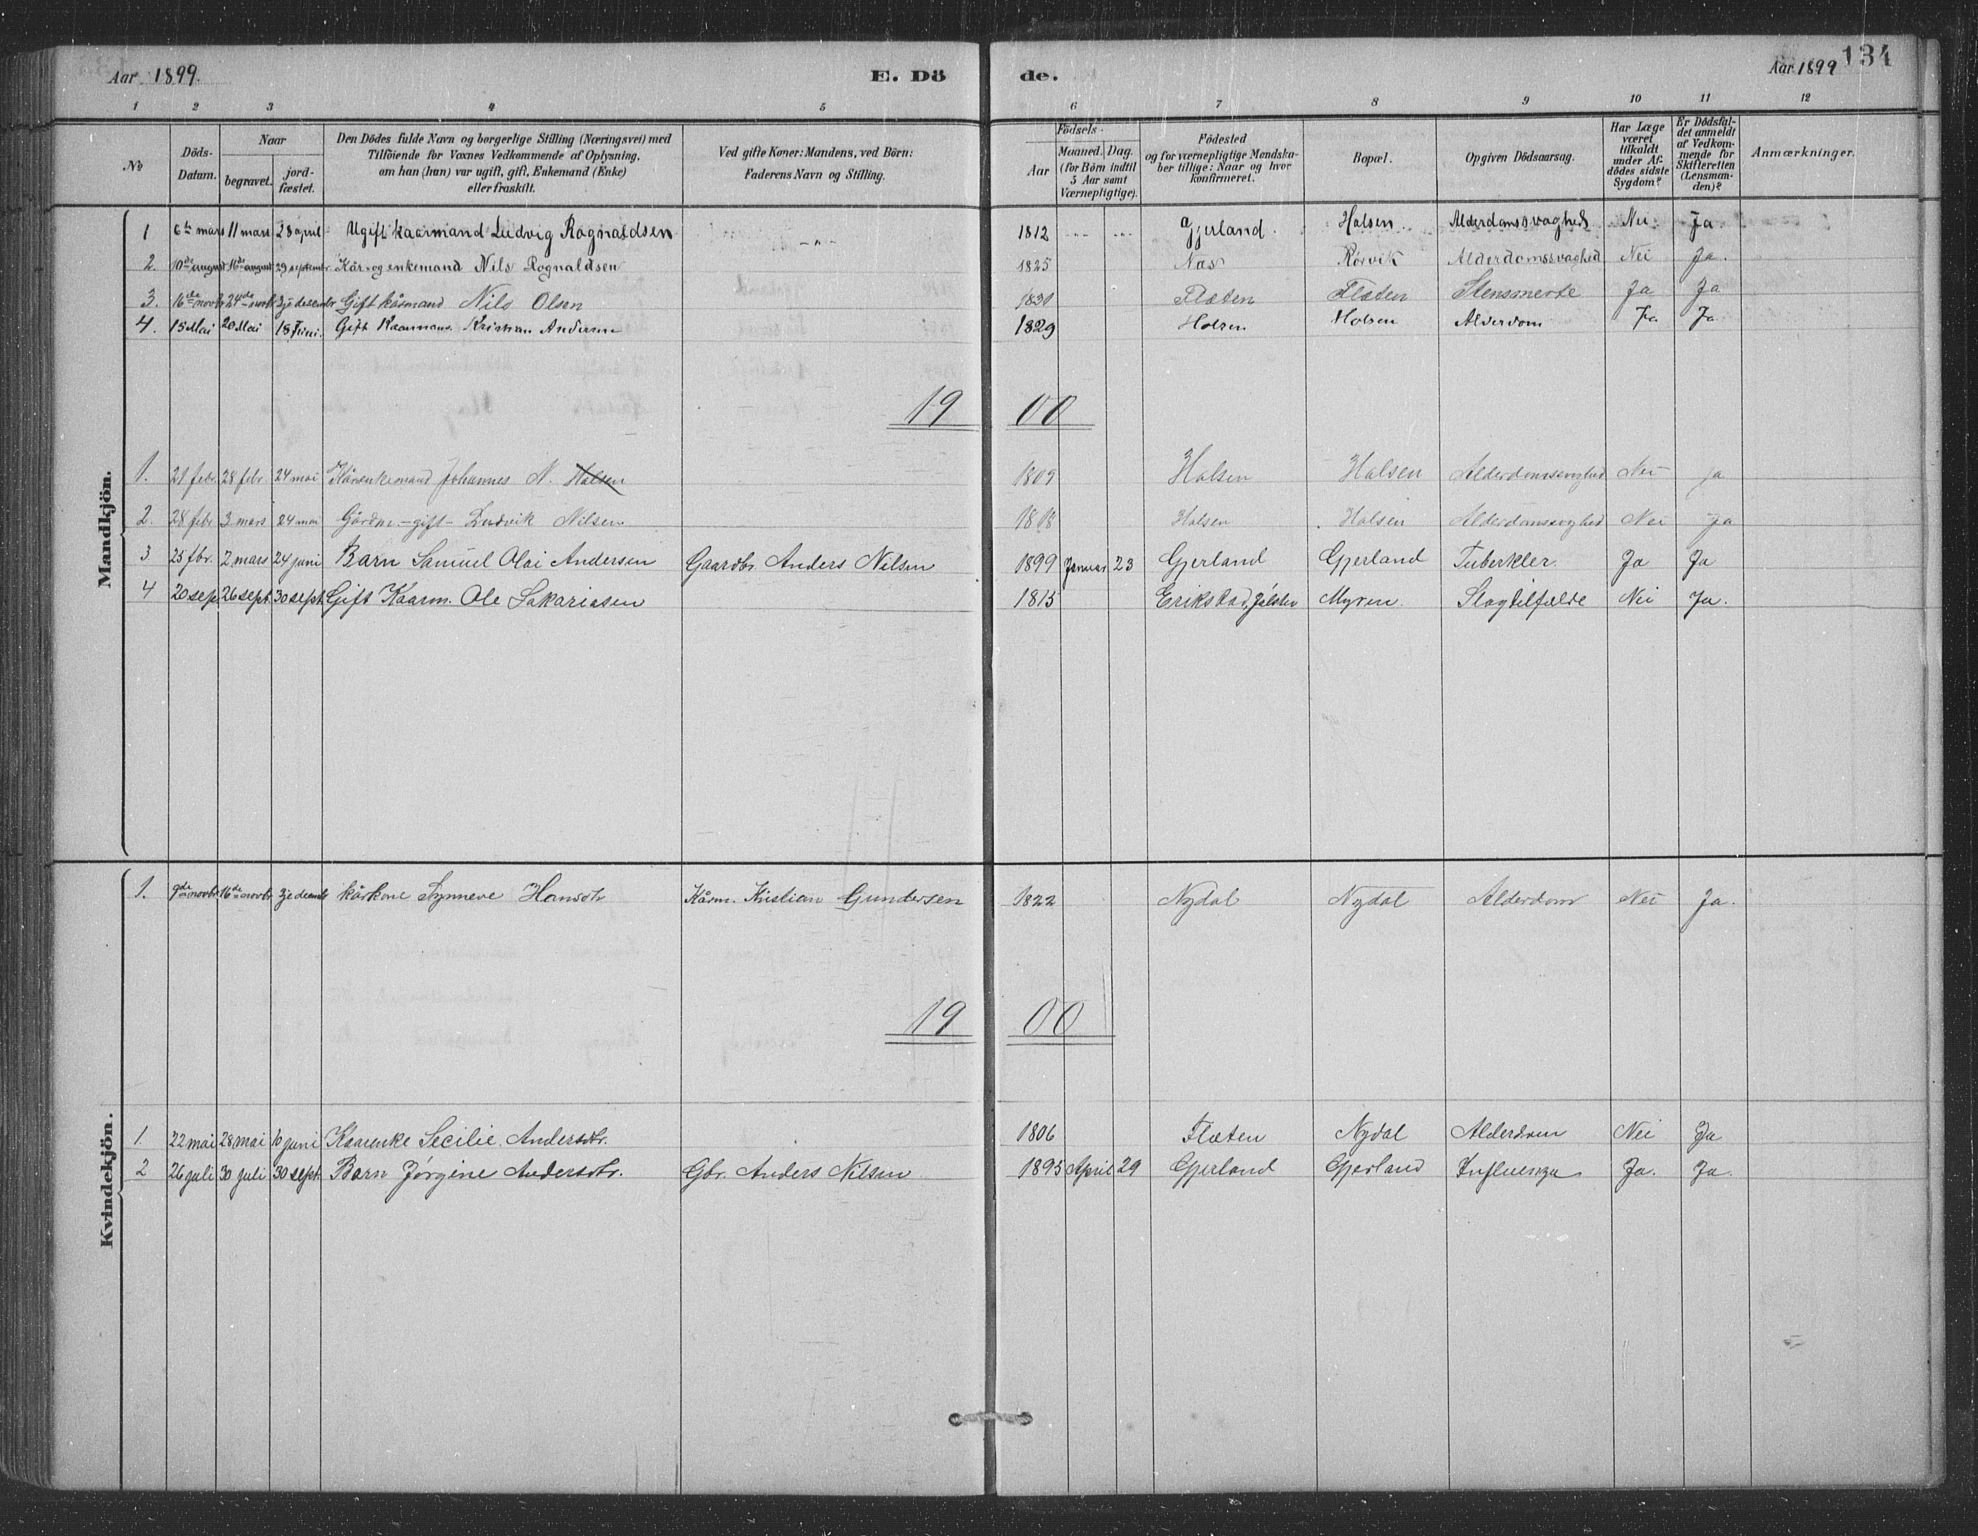 Aar 1899. E. Dö de. Aar 1899 134
1 2 3 4 5 6 7 8 9 10 11 12
No Döds-Datum. Naar begravet. jord-fæstet. Den Dödes fulde Navn og borgerlige Stilling (Næringsvei) med Tilföiende for Voxnes Vedkommende af Oplysning, om han (hun) var ugift, gift, Enkemand (Enke) eller fraskilt. Ved gifte Koner: Mandens, ved Börn: Faderens Navn og Stilling. Födsels- Aar Maaned. Dag. (for Börn indtil 5 Aar samt Værnepligtige). Födested og for værnepligtige Mandska-ber tillige: Naar og hvor konfirmeret. Bopæl. Opgiven Dödsaarsag. Har Læge været tilkaldt under Af-dödes sidste Sygdom? Er Dödsfal-det anmeldt af Vedkom-mende for Skifteretten (Lensman-den)? Anmærkninger.
Mandkjön.
1 6te mars 11 mars 28 april Ugift kaarmand Ludvig Rognaldsen - „ - 1812 ... ... Gjerland. Halsen Alderdomssvaghed Nei Ja
2. 10de august 16de august 29 septembr Kår- og enkemand Nils Rognaldsen 1825 Nas Rørvik Alderdomssvaghed Nei Ja.
3. 16de novbr 24de novbr 3je decembr Gift kårmand Nils Olsen 1831 Flaten Flaten Stensmerte Ja Ja
4. 15 Mai 20 Mai 18 Juni. Gift Kaarmand Kristian Andersen 1829 Holsen Holsen Alderdom Ja Ja.
19 00
1. 21 febr. 28 febr. 24 mai Kårenkemand Johannes N. Halsen 1809 Halsen Halsen Alderdomssvaghed Nei ja
2. 28 febr 3 mars 24 mai Gårdm. - gift - Ludvik Nilsen 1818 Holsen Holsen Alderdomssvaghed Nei Ja
3 25 fbr. 2 mars 24 juni Barn Samuel Olai Andersen Gaardbr. Anders Nilsen 1899 Januar 23 Gjerland Gjerland Tuberkler. Ja Ja
4 20 sept. 26 sept. 30 sept. Gift Kaarm. Ole Sakariasen 1815 Erikstad, Jølster Myren. Slagtilfælde Nei Ja.
Kvindekjön.
1. 9de novbr. 16de novbr 3je decembr kårkone Synneve Hansdtr Kårm. Kristian Gundersen 1822 Nydal Nydal Alderdom Nei Ja.
19 00
1. 22 mai 28 mai juni Kaarenke Secilie Andersdtr. 1806 Flaten Nydal Alderdom Nei Ja
2 26 juli 30 juli 30 sept. Barn Jørgine Andersdtr. Gbr. Anders Nilsen 1895 April 29 Gjerland Gjerland Influenza Ja. Ja.